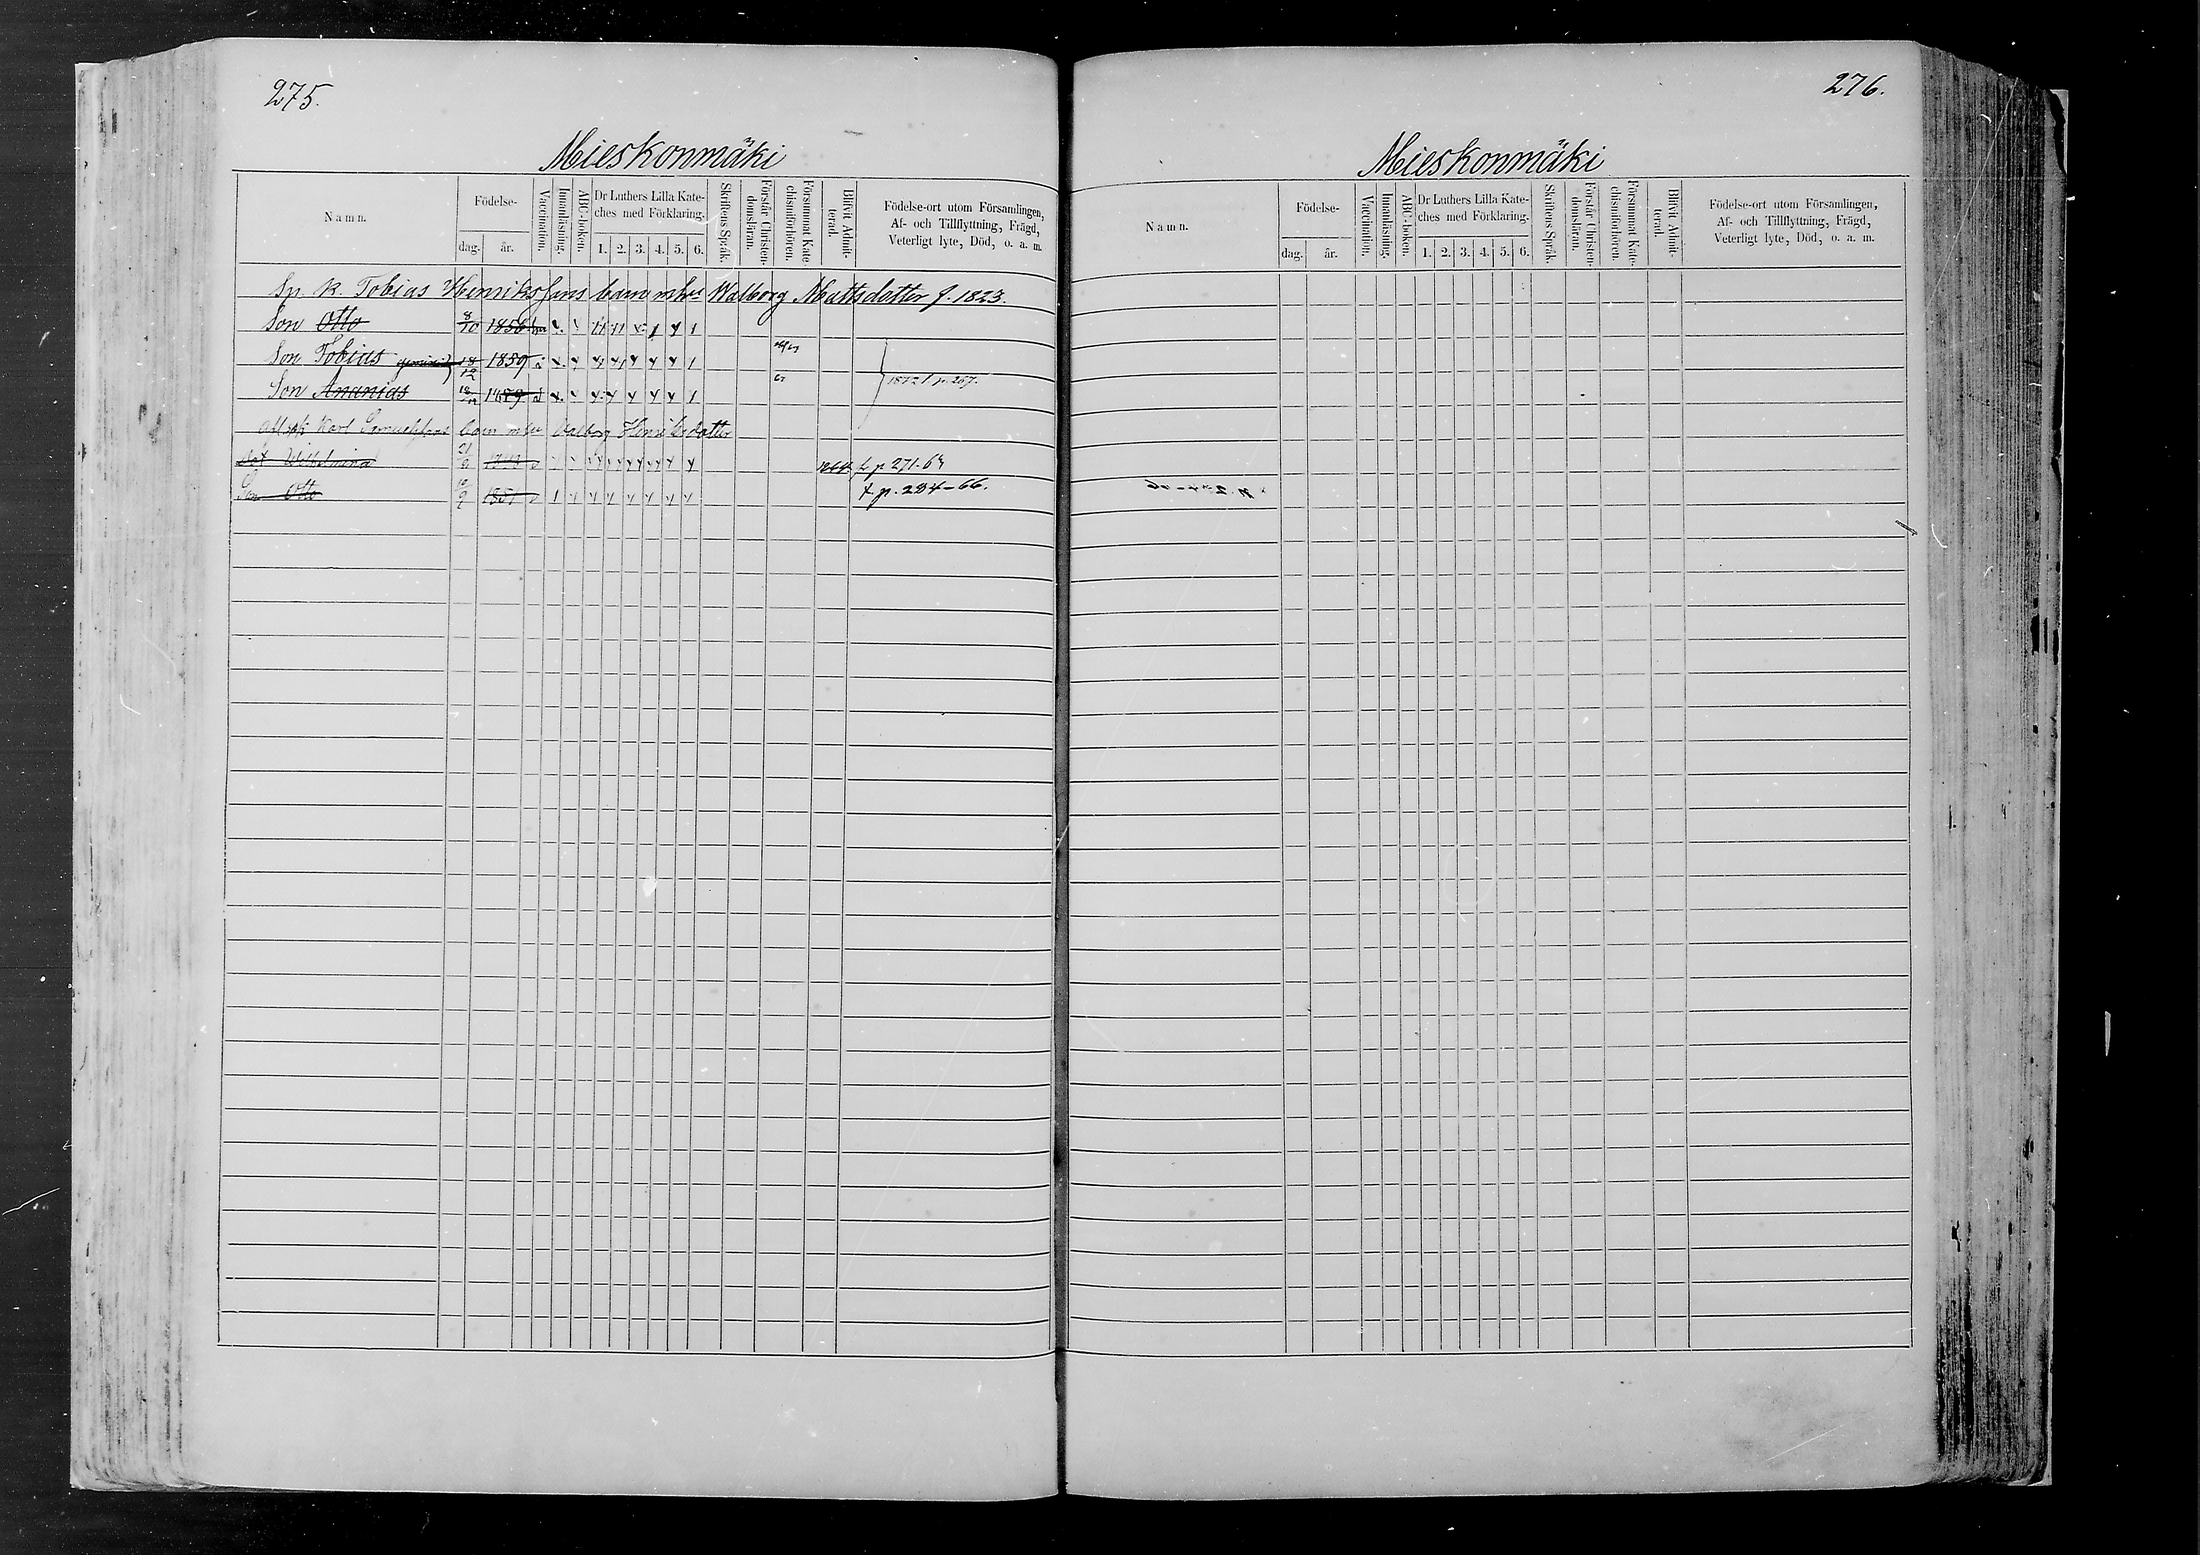 275.
Mieskonmäki
Namn.
Födelse-
dag. år.
Vaccination.
Innanläsning.
ABC-boken.
Dr Luthers Lilla Kate-
ches med Förklaring.
1. 2. 3. 4. 5. 6.
Skriftens Språk.
Förstår Christen-
domsläran.
Försummat Kate-
chismiförhören.
Blifvit Admit-
terad.
Födelse-ort utom Församlingen,
Af- och Tillflyttning, Frägd,
Veterligt lyte, Död, o. a. m.
Sp. k. Tobias Henrikssons barn mhu Walborg Mattsdotter f. 1823.
Son Otto 8/10 1856
Son Tobias 18/12 1859
Son Ananias 18/12 1859
1872 / p. 267.
Karl barn mhu Valborg Henriksdotter
Dot Wilhelmina 21/9 1864. t. p 271. 67
Son Otto 1851 t. p. 284-66.
276.
Mieskonmäki
Namn.
Födelse-
dag. år.
Vaccination.
Innanläsning.
ABC-boken.
Dr Luthers Lilla Kate-
ches med Förklaring.
1. 2. 3. 4. 5. 6.
Skriftens Språk.
Förstår Christen-
domsläran.
Försummat Kate-
chismiförhören.
Blifvit Admit-
terad.
Födelse-ort utom Församlingen,
Af- och Tillflyttning, Frägd,
Veterligt lyte, Död, o. a. m.